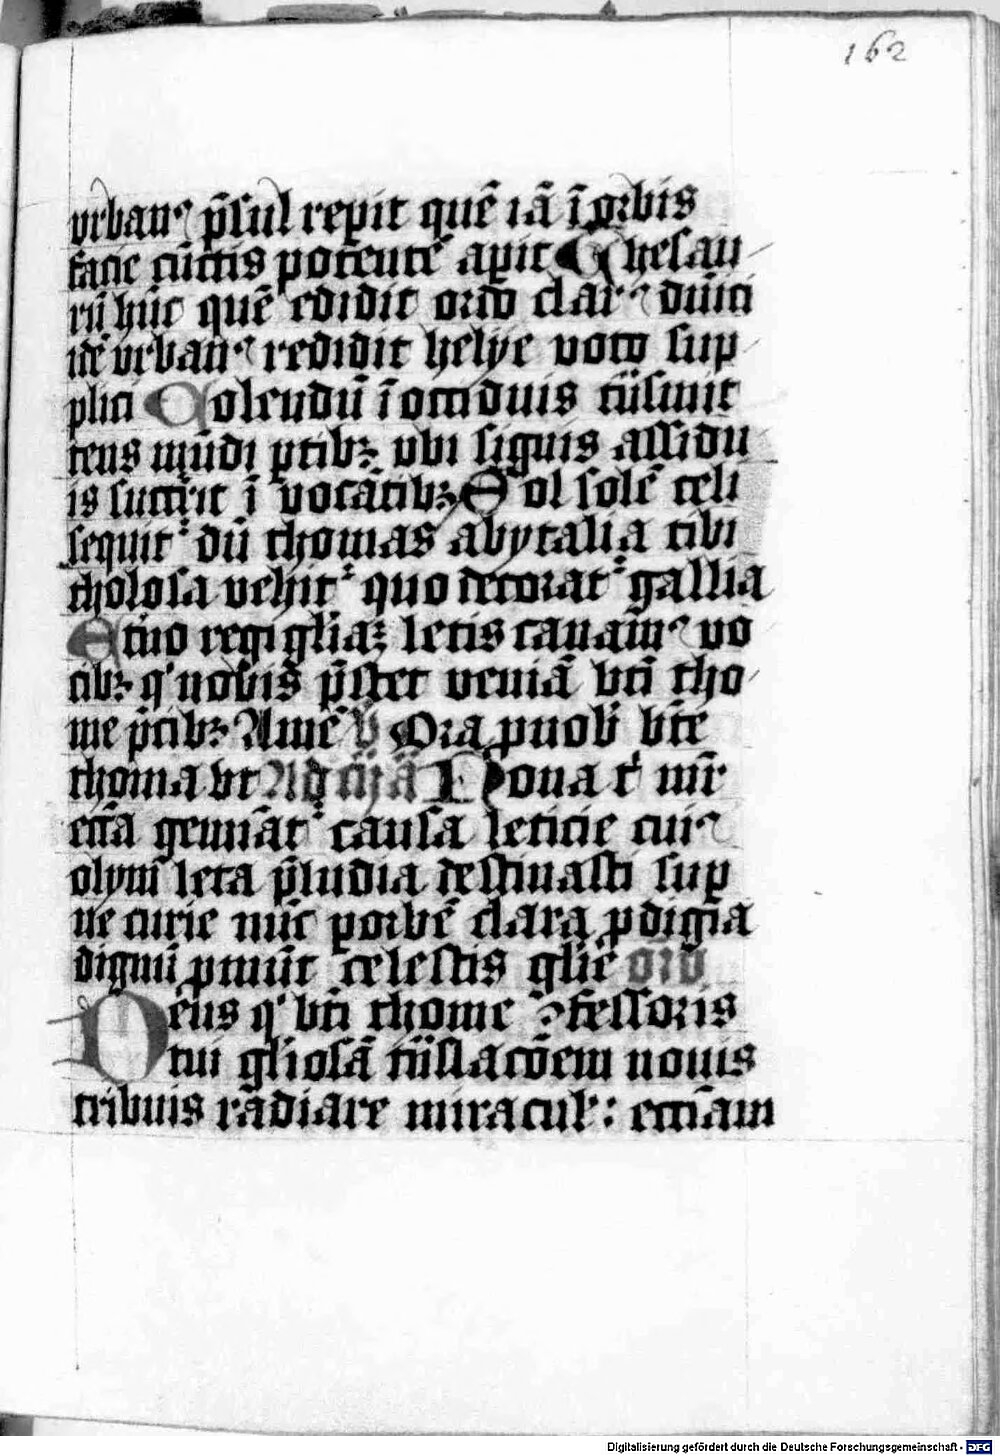 162
vrban⁹ p̄sul repit quē iā ī orbis
facie cūctis potentē apit Thesau
rū hūc quē edidit ordo clar⁹ dūici
idē vrban⁹ redidit helye voto sup
plici Colendū ī occiduis trāsmit
tens mūdi ptibꝫ vbi signis assidu
is succr̄it ī vocātibꝫ Sol solē celi
sequit᷑ dū thomas abytalia tibi
tholosa vehit᷑ quo decorat᷑ gallia
Et̄no regi gl̄iaꝫ letis canam⁹ vo
cibꝫ qⁱ nobis p̄stet veniā bt̄i tho
me p̄cibꝫ Amē V Ora p nob̄ bt̄e
thoma vt Ad Nona t mr̄
ecc̄a gemīat᷑ causa leticie cui⁹
olym leta p̄ludia destinasti sup
ne curie nūc porbē clara pdigia
dignū pmūt celestis glīe orō
Deus qⁱ bt̄i thome ꝯfessoris
tui gl̄iosā trāslacōem nouis
tribuis radiare miracul̕: ecc̄iam
Digitalisierung gefördert durch die Deutsche Forschungsgemeinschaft - DFG